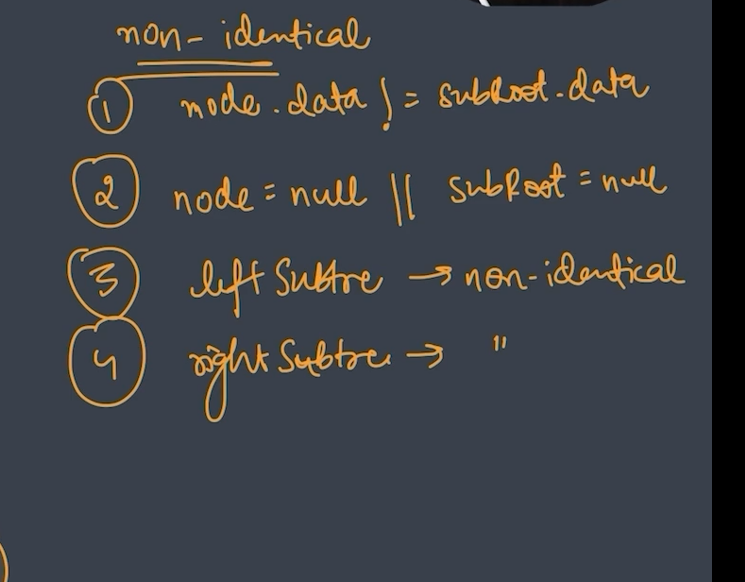 non-identical
1 node.data != subRoot.data
2 node = null || subRoot = null
3 left Subtre → non-identical
4 right Subtree → "